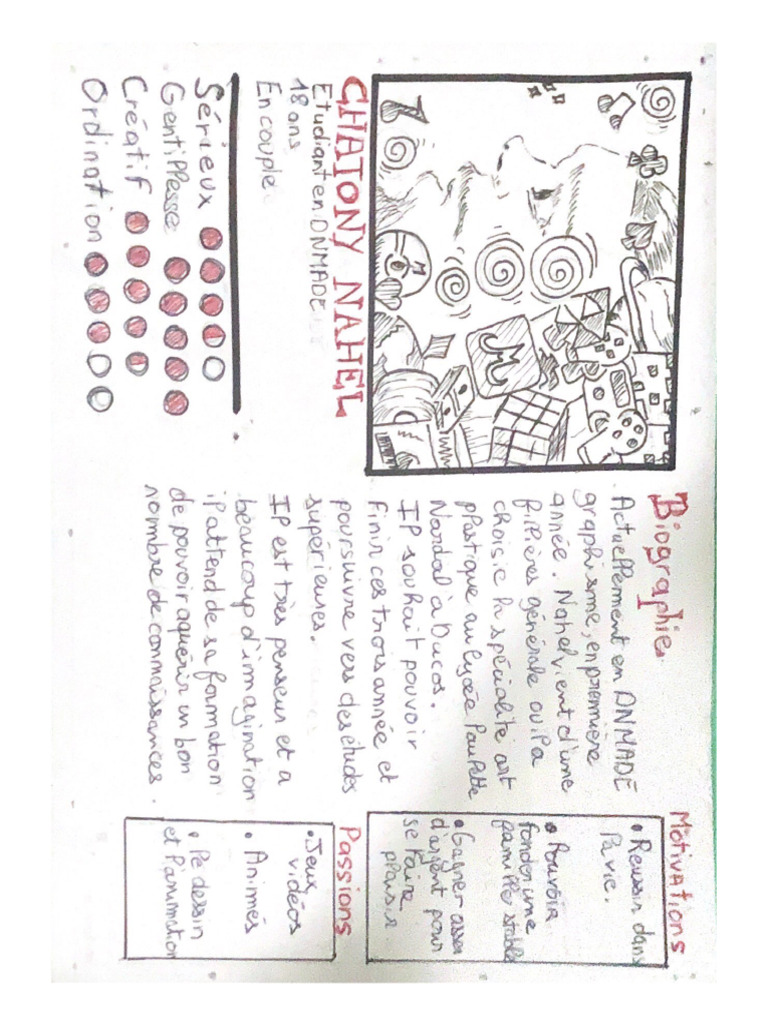 GHAIONY NAHEL
Etudiant en DNMADE
18 ans
En couple
Sérieux
Gentillesse
Créatif
Ordination
Biographie
Actuellement en DNMADE
graphisme, en première
année. Nahel vient d'une
filières générale ou il a
choisie la spécialité art
plastique au lycée Paulette
Nardal à Ducos.
Il souhait pouvoir
finir ces trois année et
poursuivre vers des études
supérieures.
Il est très penseur et a
beaucoup d'imagination
il attend de sa formation
de pouvoir aquérir un bon
nombre de connaissances.
Motivations
• Reussir dans
la vie.
• Pouvoir
fonder une
famille stable
• Gagner assez
d'argent pour
se faire
plaisir
Passions
• Jeux
vidéos
• Animés
• le dessin
et l'animation